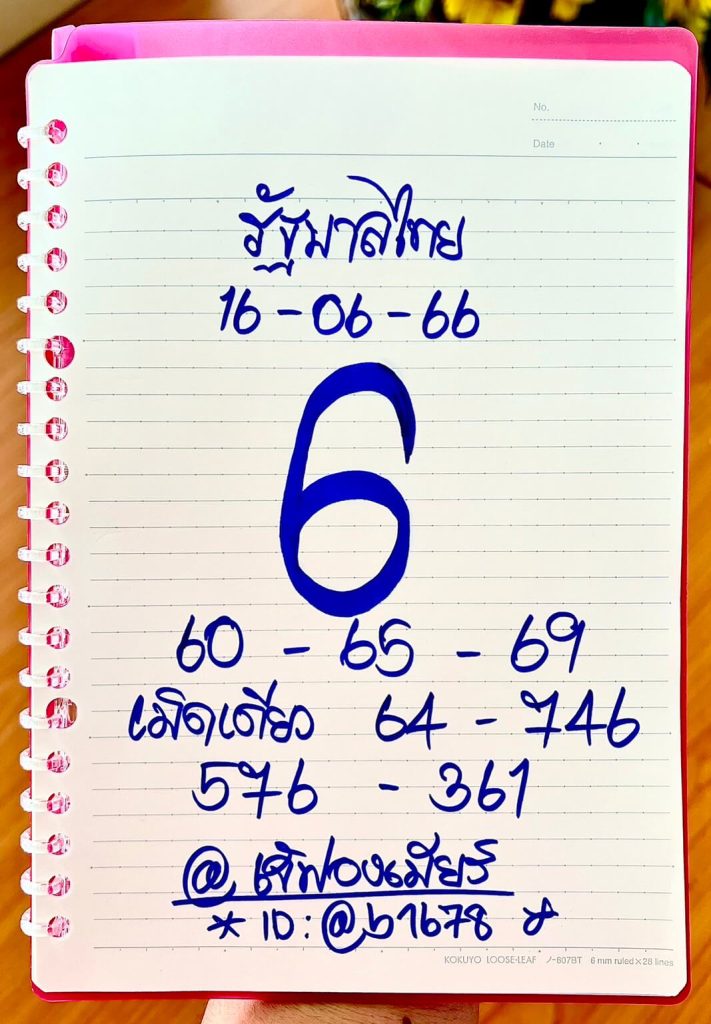 No.
Date
รัฐบาลไทย
16-06-66
6
60 - 65 - 69
เม็ดเดียว 64 - 746
576 - 361
@
* ID: @b1678
KOKUYO LOOSE-LEAF ノ-607BT 6 mm ruled×28 lines